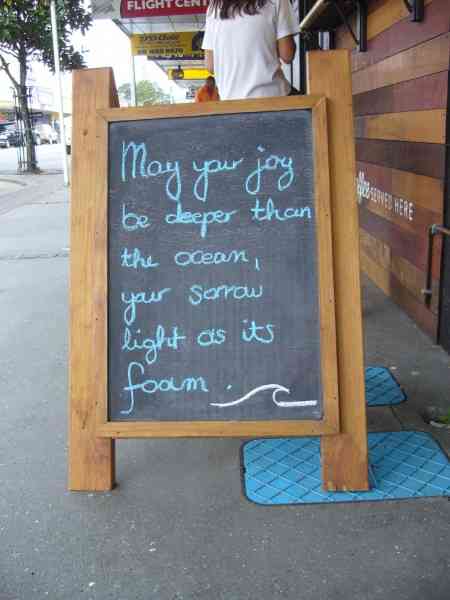 FLIGHT CENT
May your joy
be deeper than
the ocean,
your sorrow
light as its
foam.
SERVED HERE